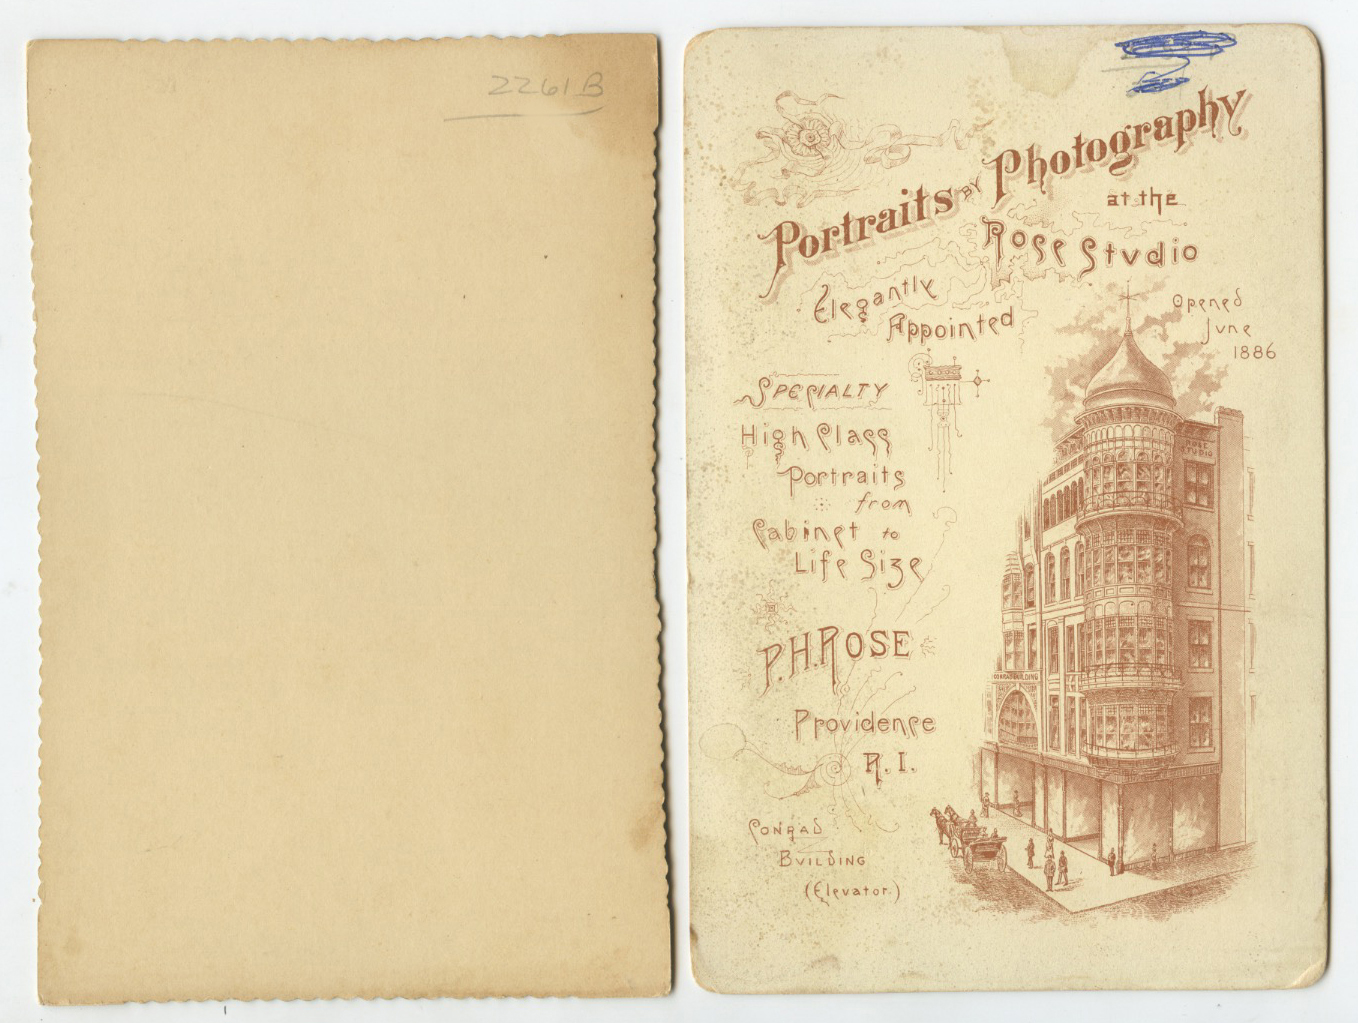 2261B
Portraits BY Photography
at the
Rose Studio
Elegantly
Appointed
Opened
June
1886
Specialty
High Class
Portraits
from
Cabinet to
Life Size
P.H.ROSE
Providence
R. I.
Conrad
Building
(Elevator.)
ROSE
STUDIO
CONRAD BUILDING